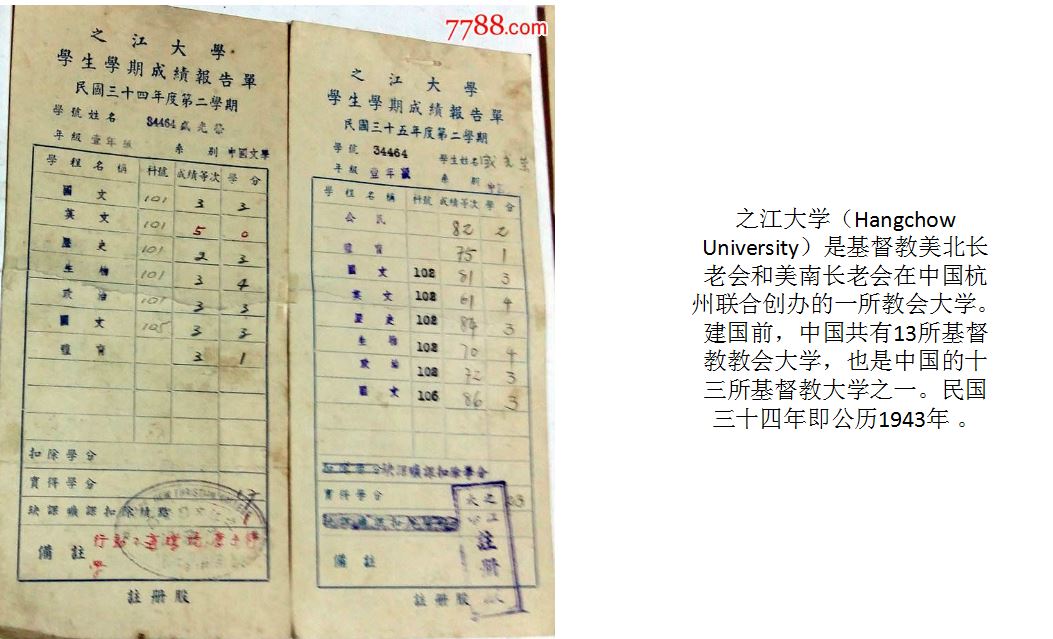 7788.com
之江大學
學生學期成績報告單
民國三十四年度第二學期
學號姓名 34464
年級 壹年級 系別 中國文學
學程名稱 科號 成績等次 學分
國文 101 3 3
英文 101 5 0
歷史 101 2 3
生物 101 3 4
政治 101 3 3
國文 105 3 3
體育 3 1
扣除學分
實得學分 17
缺課曠課扣除績點
備註
註冊股
之江大學
學生學期成績報告單
民國三十五年度第二學期
學號 34464 學生姓名
年級 壹年級 系別
學程名稱 科號 成績等次 學分
公民 82 2
體育 75 1
國文 102 81 3
英文 102 61 4
歷史 102 84 3
生物 102 70 4
政治 102 72 3
國文 106 86 3
缺課曠課扣除學分
實得學分 23
備註
註冊股
之江大
註冊
之江大学（Hangchow
University）是基督教美北长
老会和美南长老会在中国杭
州联合创办的一所教会大学。
建国前，中国共有13所基督
教教会大学，也是中国的十
三所基督教大学之一。民国
三十四年即公历1943年 。